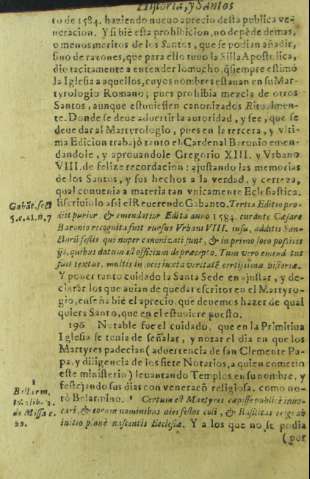 Historia, y Santos
to de 1584. haziendo nueuo aprecio desta publica ve-
neracion. Y si biē esta prohibicion, no depēde de mas,
o menos meritos de los Santos, que se podian añadir,
sino de razones, que para ello tuuo la Silla Apostolica,
dio tacitamente a entender lo mucho, q̄ siempre estimó
la Iglesia a aquellos, cuyos nombres estauan en su Mar-
tyrologio Romano; pues prohibia mezcla de otros
Santos, aunque estuuiessen canonizados Ritualmen-
te. Donde se deue aduertir la autoridad, y fee, que se
deue dar al Martyrologio, pues en la tercera, y vlti-
ma Edicion trabajó tanto el Cardenal Baronio emen-
dandole, y aprouandole Gregorio XIII. y Vrbano
VIII. de felize recordacion: ajustando las memorias
de los Santos, y sus hechos a la verdad, y certeza,
qual conuenia a materia tan vnicamente Eclesiastica.
Escriuiolo assi el Reuerendo Gabanto. Tertia Editio pro-
diit purior & emendatior Edita anno 1584. curante Cæsare
Baronio recognita sunt rursus Vrbani VIII. iussu, additis San-
ctorū festis qui nuper canonizati sunt, & in primo loco positis
ijs, quibus datum est officium de præcepto. Tum vero emend
sunt textus, multis in locis iuxta veritatē certissimæ historiæ.
Y poner tanto cuidado la Santa Sede en ajustar, y de-
clarar los que auian de quedar escritos en el Martyro-
gio, enseña biē el aprecio que deuemos hazer de qual
quiera Santo, que en el estuuiere puesto.
196 Notable fue el cuidado, que en la Primitiua
Iglesia se tenia de señalar, y notar el dia en que los
Martyres padecian (aduertencia de san Clemente Pa-
pa, y diligencia de los siete Notarios, a quien cometio
este ministerio) leuantando Templos en su nombre, y
festejando sus dias con veneraciō religiosa, como no-
tó Belarmino. Certum est Martyres cæpisse publicè inuo-
cari, & eorum nominibus dies festos coli, & Basilicas erigi ab
initio penè nascentis Ecclesiæ. Y a los que no se podia
(por
Gabāt. sect.
5. c. 21. n. 7
1
Bellarm.
de Missa c.